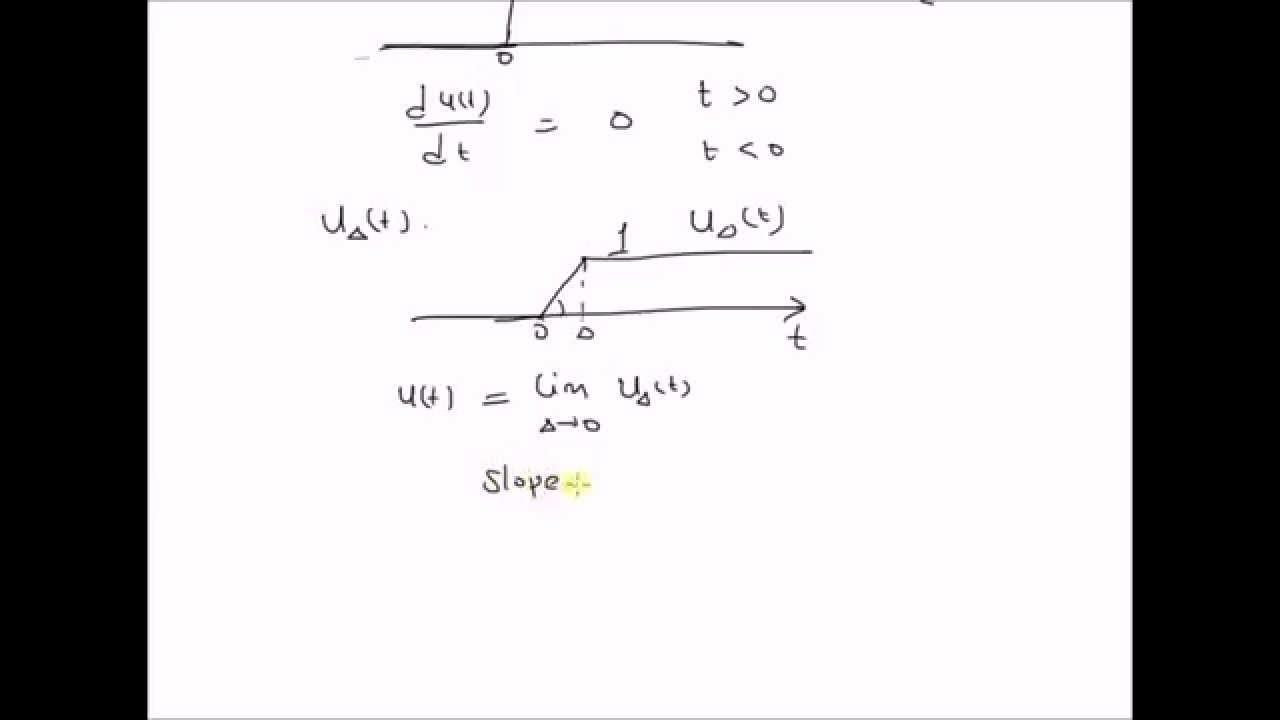 0
d u(t) / dt = 0 t > 0
t < 0
u_Δ(t).
1 u_Δ(t)
0 Δ t
u(t) = lim u_Δ(t)
Δ→0
Slope